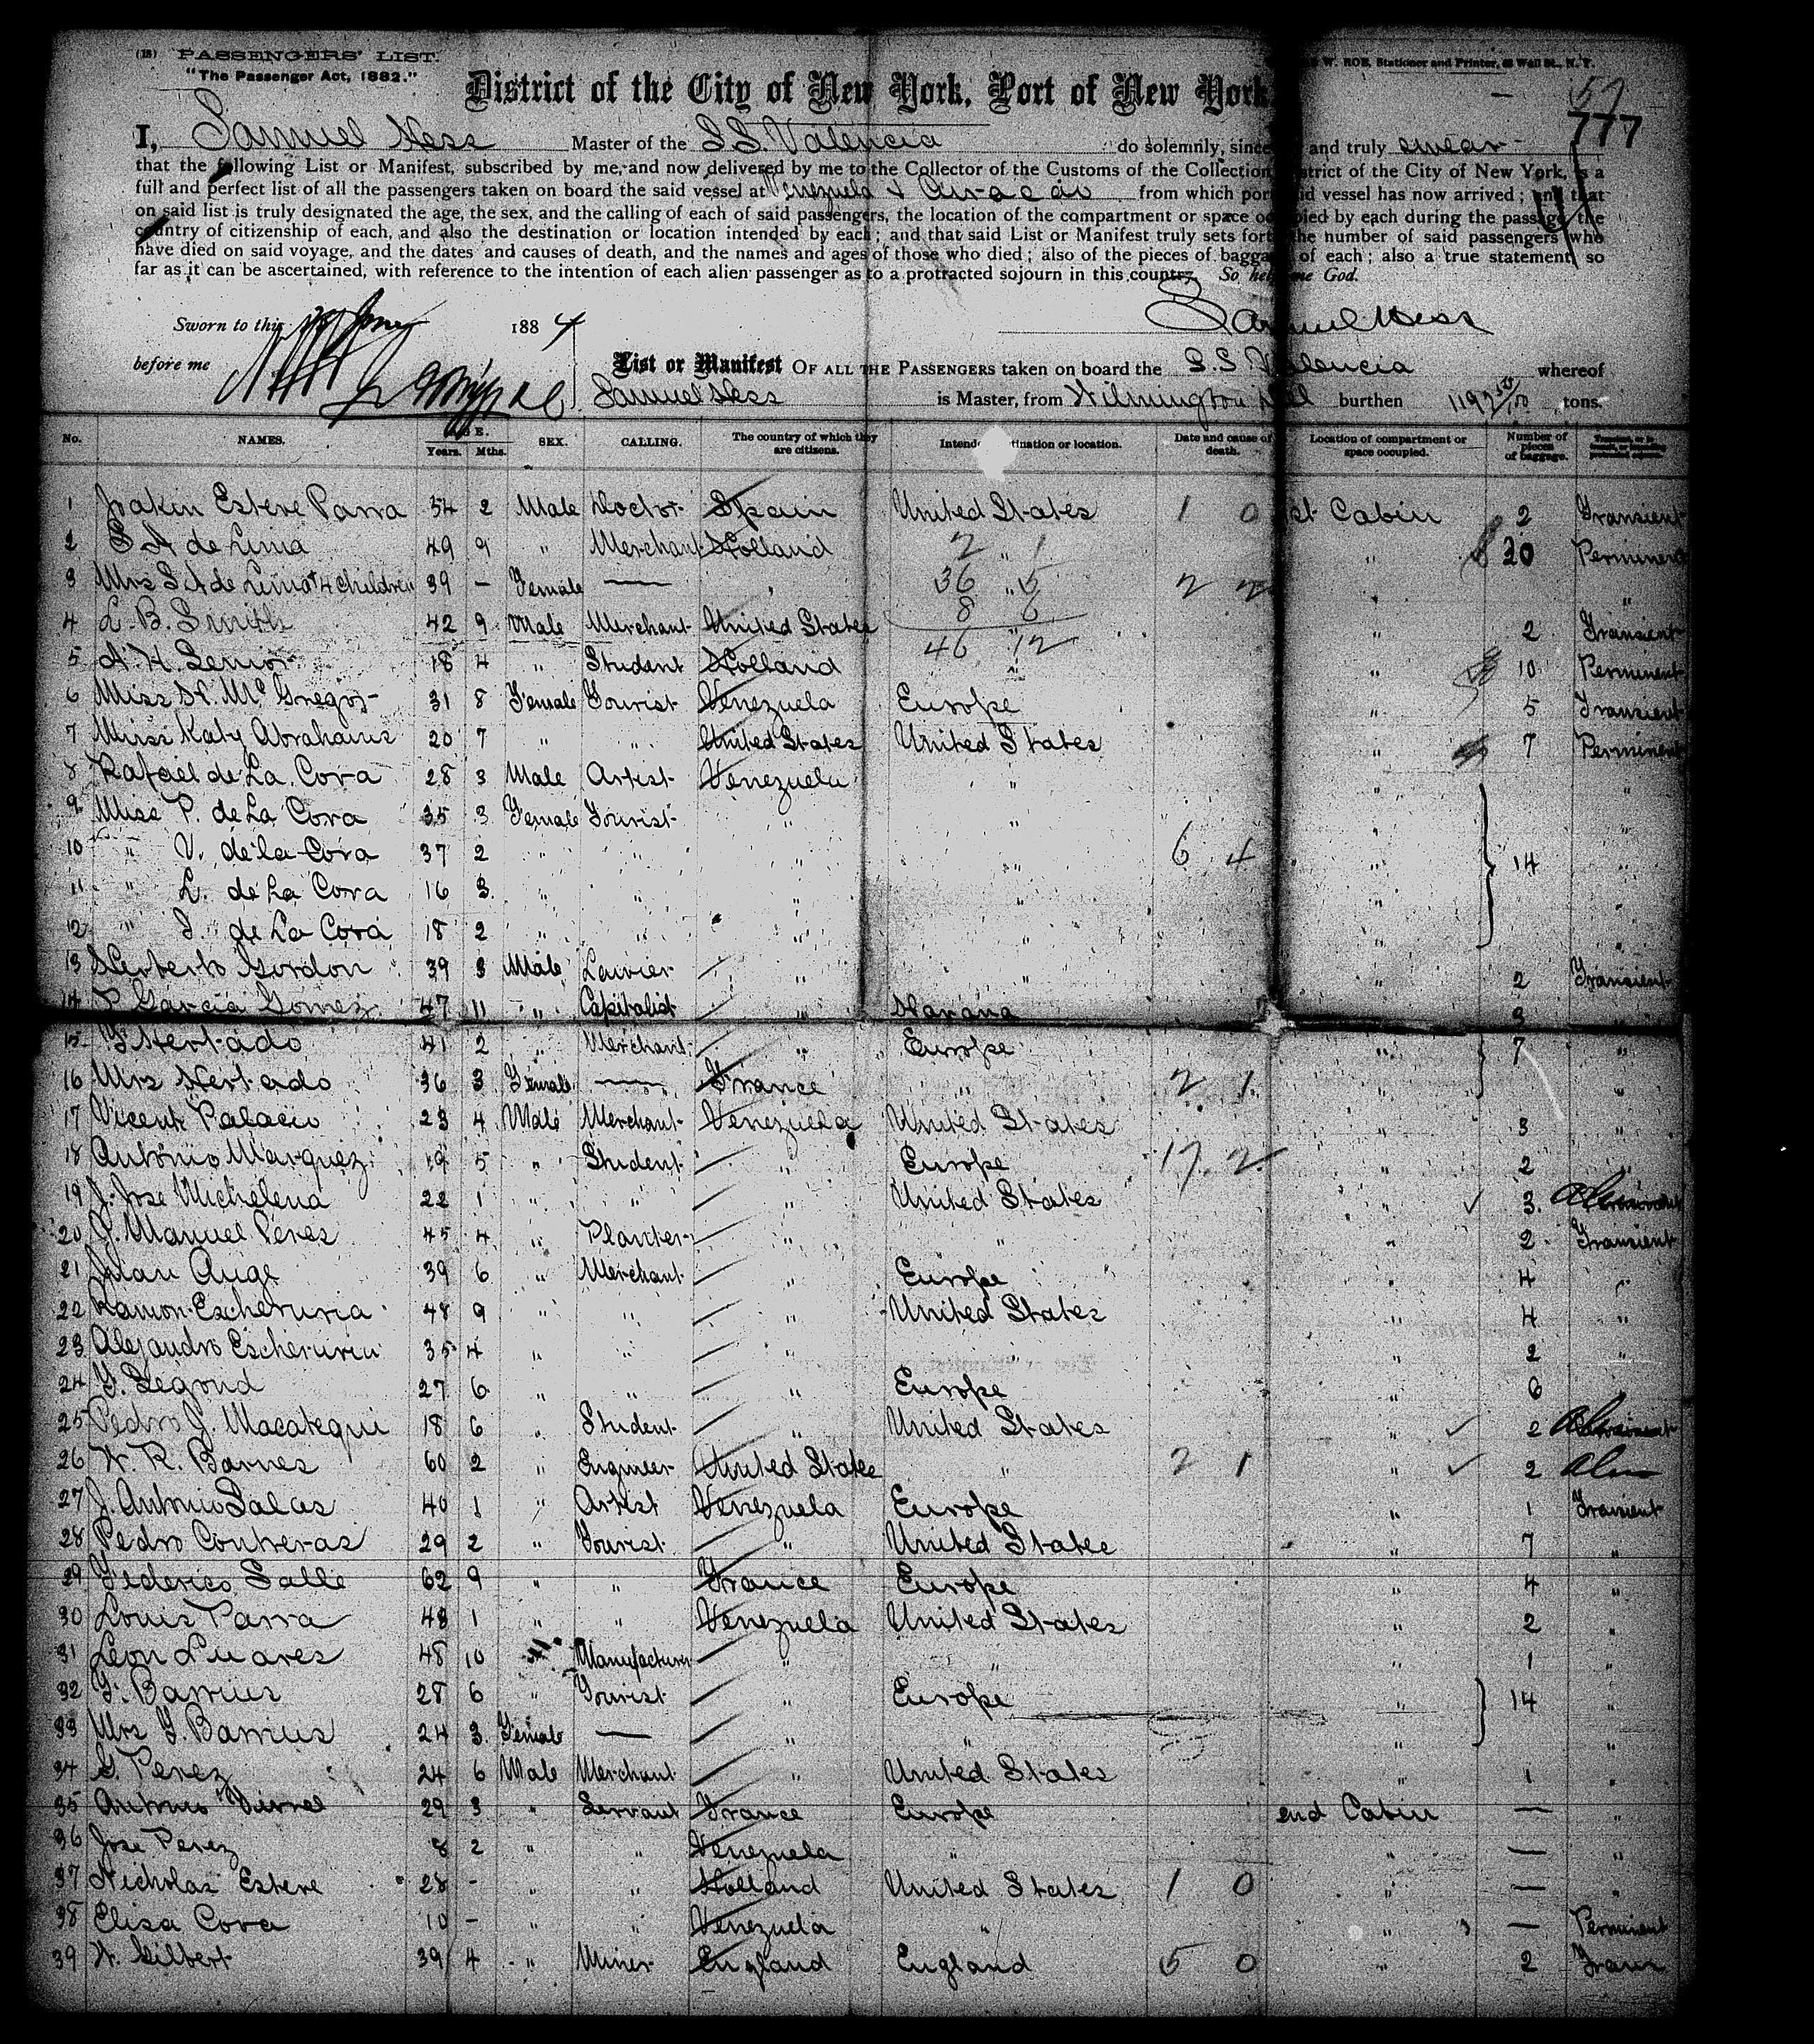 (18) PASSENGERS' LIST.
"The Passenger Act, 1882."
W. ROE, Stationer and Printer, Wall St., N. Y.
District of the City of New York, Port of New York
57
777
I, Samuel Hess Master of the S.S. Valencia do solemnly, since and truly swear
that the following List or Manifest, subscribed by me, and now delivered by me to the Collector of the Customs of the Collection strict of the City of New York, is a
full and perfect list of all the passengers taken on board the said vessel at Venezuela & Curacao from which port id vessel has now arrived; and that
on said list is truly designated the age, the sex, and the calling of each of said passengers, the location of the compartment or space occupied by each during the passage, the
country of citizenship of each, and also the destination or location intended by each; and that said List or Manifest truly sets forth the number of said passengers who
have died on said voyage, and the dates and causes of death, and the names and ages of those who died; also of the pieces of baggage of each; also a true statement, so
far as it can be ascertained, with reference to the intention of each alien passenger as to a protracted sojourn in this country. So help me God.
Samuel Hess
Sworn to this 1884
before me
List or Manifest OF ALL THE PASSENGERS taken on board the S.S. Valencia whereof
Samuel Hess is Master, from Wilmington Del burthen tons.
No. NAMES. AGE. Years. Mths. SEX. CALLING. The country of which they are citizens. Intended destination or location. Date and cause of death. Location of compartment or space occupied. Number of pieces of baggage.
1 Joakin Esteve Parra 54 2 Male Doctor Spain United States 1 0 1st Cabin 2 Transient
2 S A de Lima 49 9 " Merchant Holland " 2 1 " 20 Perminent
3 Mrs S A de Lima & 4 children 39 - Female — " " 36 5 2 2 "
4 L. B. Smith 42 9 Male Merchant United States 8 6 " 2 Transient
5 A. H. Senior 18 4 " Student Holland " 46 12 " 10 Perminent
6 Miss H. McGregor 31 8 Female Tourist Venezuela Europe " 5 Transient
7 Miss Katy Abrahams 20 7 " " United States United States " 7 Perminent
8 Rafael de La Cova 28 3 Male Artist Venezuela " " "
9 Miss P. de La Cova 35 3 Female Tourist " " " "
10 " V. de la Cova 37 2 " " " " 6 4 " 14 "
11 " L. de La Cova 16 3 " " " " " "
12 " J. de La Cova 18 2 " " " " " "
13 Herberto Gordon 39 3 Male Lawier " " " 2 Transient
14 P Garcia Gomez 47 11 " Capitalist " Havana " 3 "
15 F Hertado 41 2 " Merchant " Europe " 7 "
16 Mrs Hertado 36 3 Female — France " 2 1 "
17 Vicent Palacio 23 4 Male Merchant Venezuela United States " 3 "
18 Antonio Marquez 19 5 " Student " Europe 17 2 " 2 "
19 J. Jose Michelena 22 1 " " " United States " 3
20 J. Manuel Peres 45 4 " Planter " " " 2 Transient
21 Juan Auge 39 6 " Merchant " Europe " 4 "
22 Ramon Escheruria 48 9 " " " United States " 4 "
23 Alejandro Escheruria 35 4 " " " " " 2 "
24 F. Legond 27 6 " " " Europe " 6
25 Pedro J. Macatequi 18 6 " Student " United States " 2
26 W. R. Barnes 60 2 " Engineer United States " 2 1 " 2
27 J. Antonio Salas 40 1 " Artist Venezuela Europe " 1 Transient
28 Pedro Contreras 29 2 " Tourist " United States " 7 "
29 Federico Salle 62 9 " " France Europe " 4 "
30 Louis Parra 48 1 " " Venezuela United States " 2 "
31 Leon Luares 48 10 " Manufacturer " " " 1 "
32 F. Barrius 28 6 " Tourist " Europe " 14 "
33 Mrs F. Barrius 24 3 Female — " " " "
34 G. Perez 24 6 Male Merchant " United States " 1 "
35 Antonio 29 3 " Servant France Europe 2nd Cabin — "
36 Jose Perez 8 2 " " Venezuela " " — "
37 Nicholas Esteve 28 - " " Holland United States 1 0 " — "
38 Elisa Cova 10 - " " Venezuela " " — Perminent
39 W. Gilbert 39 4 " Miner England England 5 0 " 2 Trans